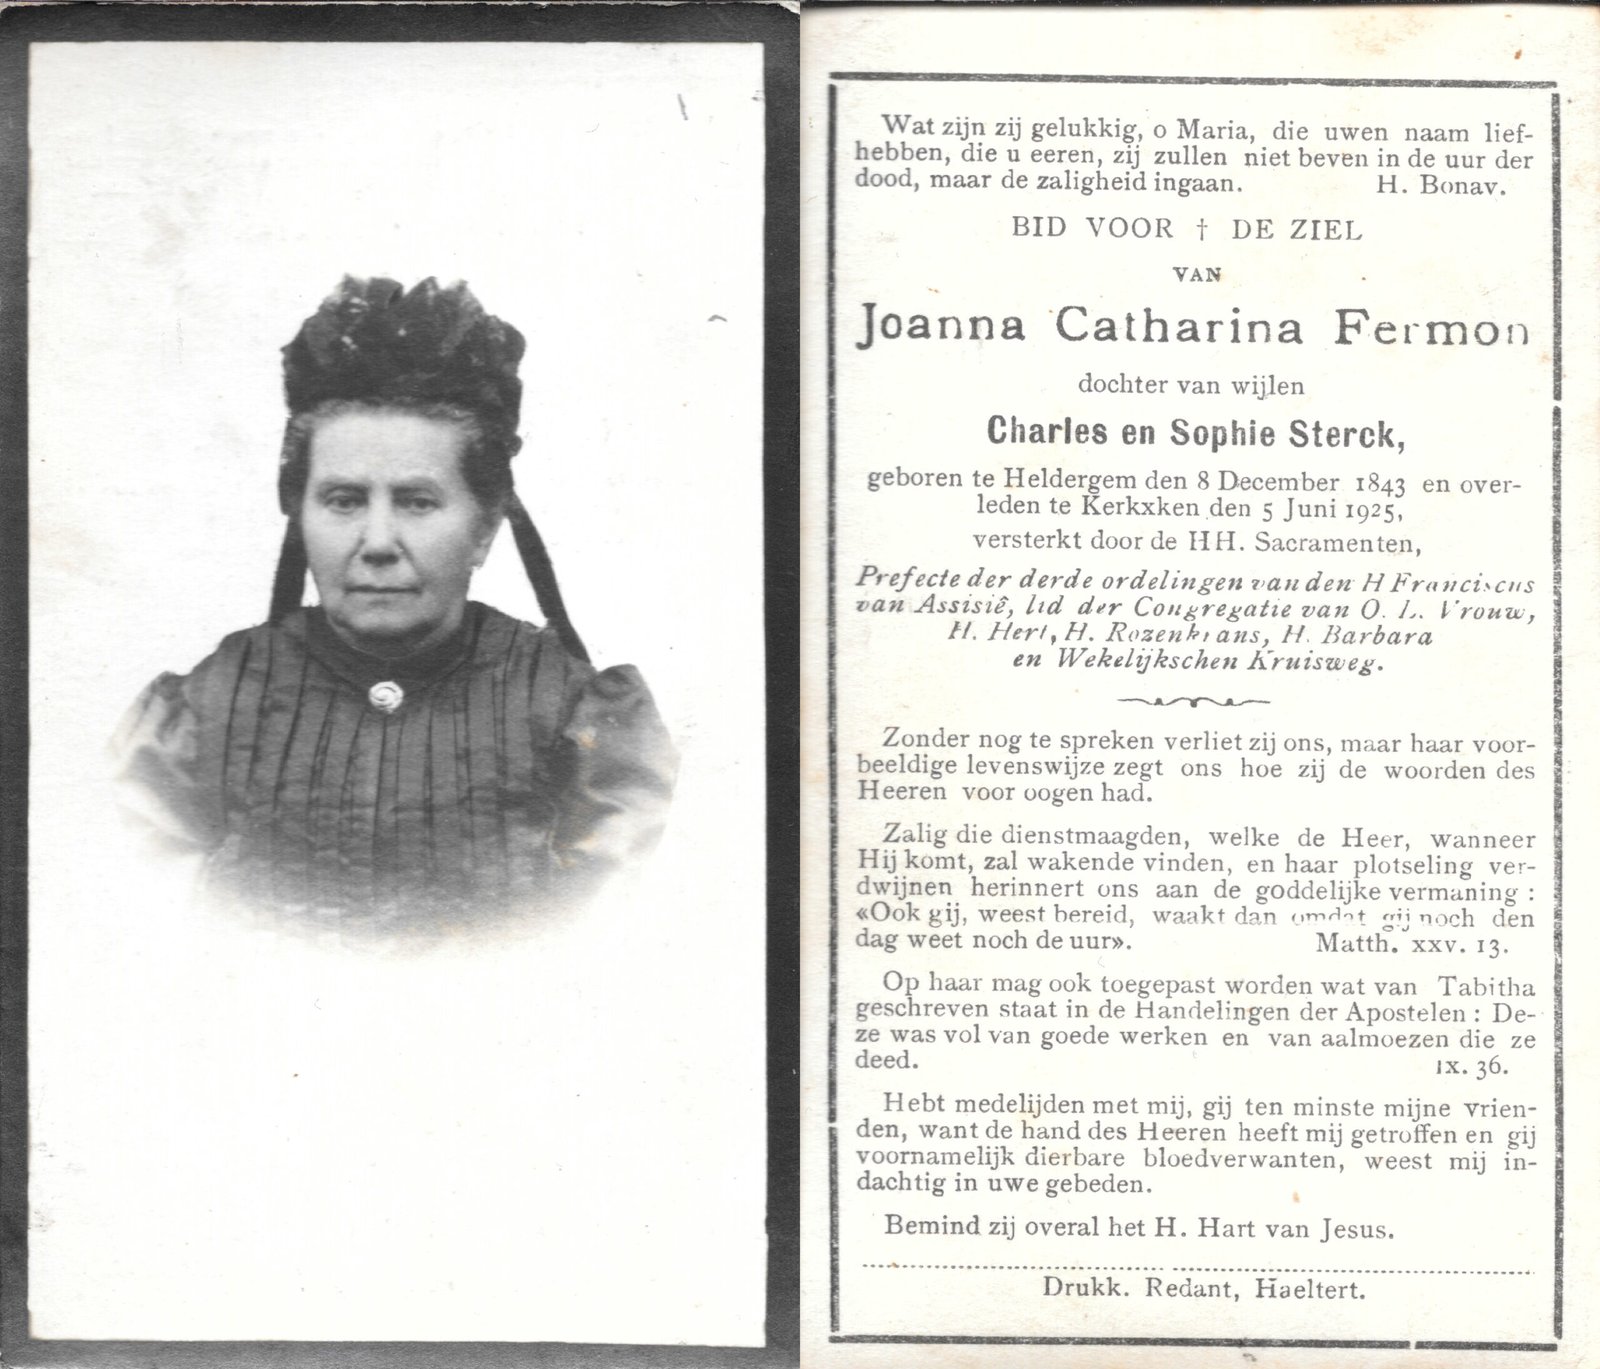 Wat zijn zij gelukkig, o Maria, die uwen naam lief-
hebben, die u eeren, zij zullen niet beven in de uur der
dood, maar de zaligheid ingaan. H. Bonav.
BID VOOR † DE ZIEL
VAN
Joanna Catharina Fermon
dochter van wijlen
Charles en Sophie Sterck,
geboren te Heldergem den 8 December 1843 en over-
leden te Kerkxken den 5 Juni 1925,
versterkt door de HH. Sacramenten,
Prefecte der derde ordelingen van den H Franciscus
van Assisië, lid der Congregatie van O. L. Vrouw,
H. Hert, H. Rozenkrans, H. Barbara
en Wekelijkschen Kruisweg.
Zonder nog te spreken verliet zij ons, maar haar voor-
beeldige levenswijze zegt ons hoe zij de woorden des
Heeren voor oogen had.
Zalig die dienstmaagden, welke de Heer, wanneer
Hij komt, zal wakende vinden, en haar plotseling ver-
dwijnen herinnert ons aan de goddelijke vermaning :
«Ook gij, weest bereid, waakt dan omdat gij noch den
dag weet noch de uur». Matth. xxv. 13.
Op haar mag ook toegepast worden wat van Tabitha
geschreven staat in de Handelingen der Apostelen : De-
ze was vol van goede werken en van aalmoezen die ze
deed. ıx. 36.
Hebt medelijden met mij, gij ten minste mijne vrien-
den, want de hand des Heeren heeft mij getroffen en gij
voornamelijk dierbare bloedverwanten, weest mij in-
dachtig in uwe gebeden.
Bemind zij overal het H. Hart van Jesus.
Drukk. Redant, Haeltert.